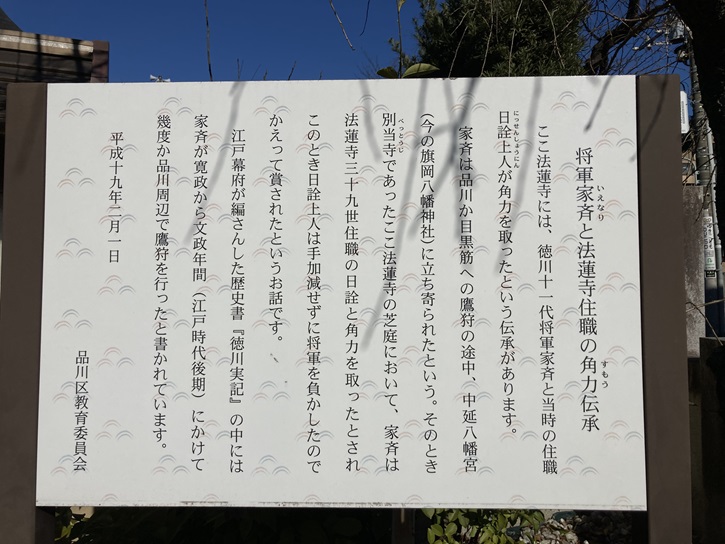 将軍家斉と法蓮寺住職の角力伝承
ここ法蓮寺には、徳川十一代将軍家斉と当時の住職
日詮上人が角力を取ったという伝承があります。
家斉は品川か目黒筋への鷹狩の途中、中延八幡宮
(今の旗岡八幡神社)に立ち寄られたという。そのとき
別当寺であったここ法蓮寺の芝庭において、家斉は
法蓮寺三十九世住職の日詮と角力を取ったとされ
このとき日詮上人は手加減せずに将軍を負かしたので
かえって賞されたというお話です。
江戸幕府が編さんした歴史書『徳川実記』の中には
家斉が寛政から文政年間(江戸時代後期)にかけて
幾度か品川周辺で鷹狩を行ったと書かれています。
平成十九年二月一日
品川区教育委員会
いえなり
すもう
にっせんしょうにん
べっとうじ